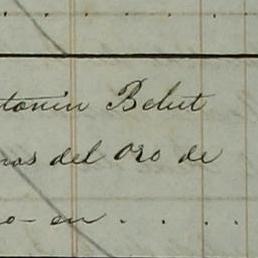 tonin Belut
nas del Oro de
o- en . . . .